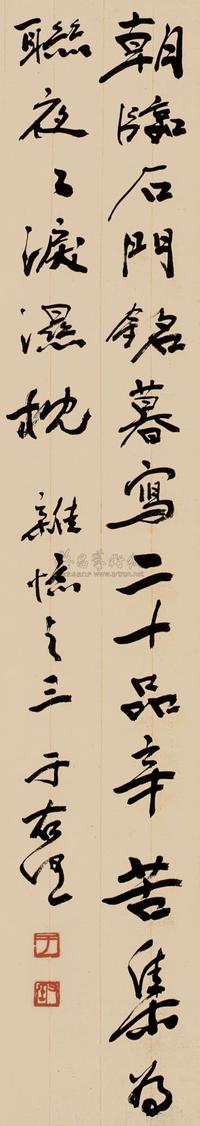 朝臨石門銘暮寫二十品辛苦集為
聯夜々淚濕枕 雜憶之三 于右任